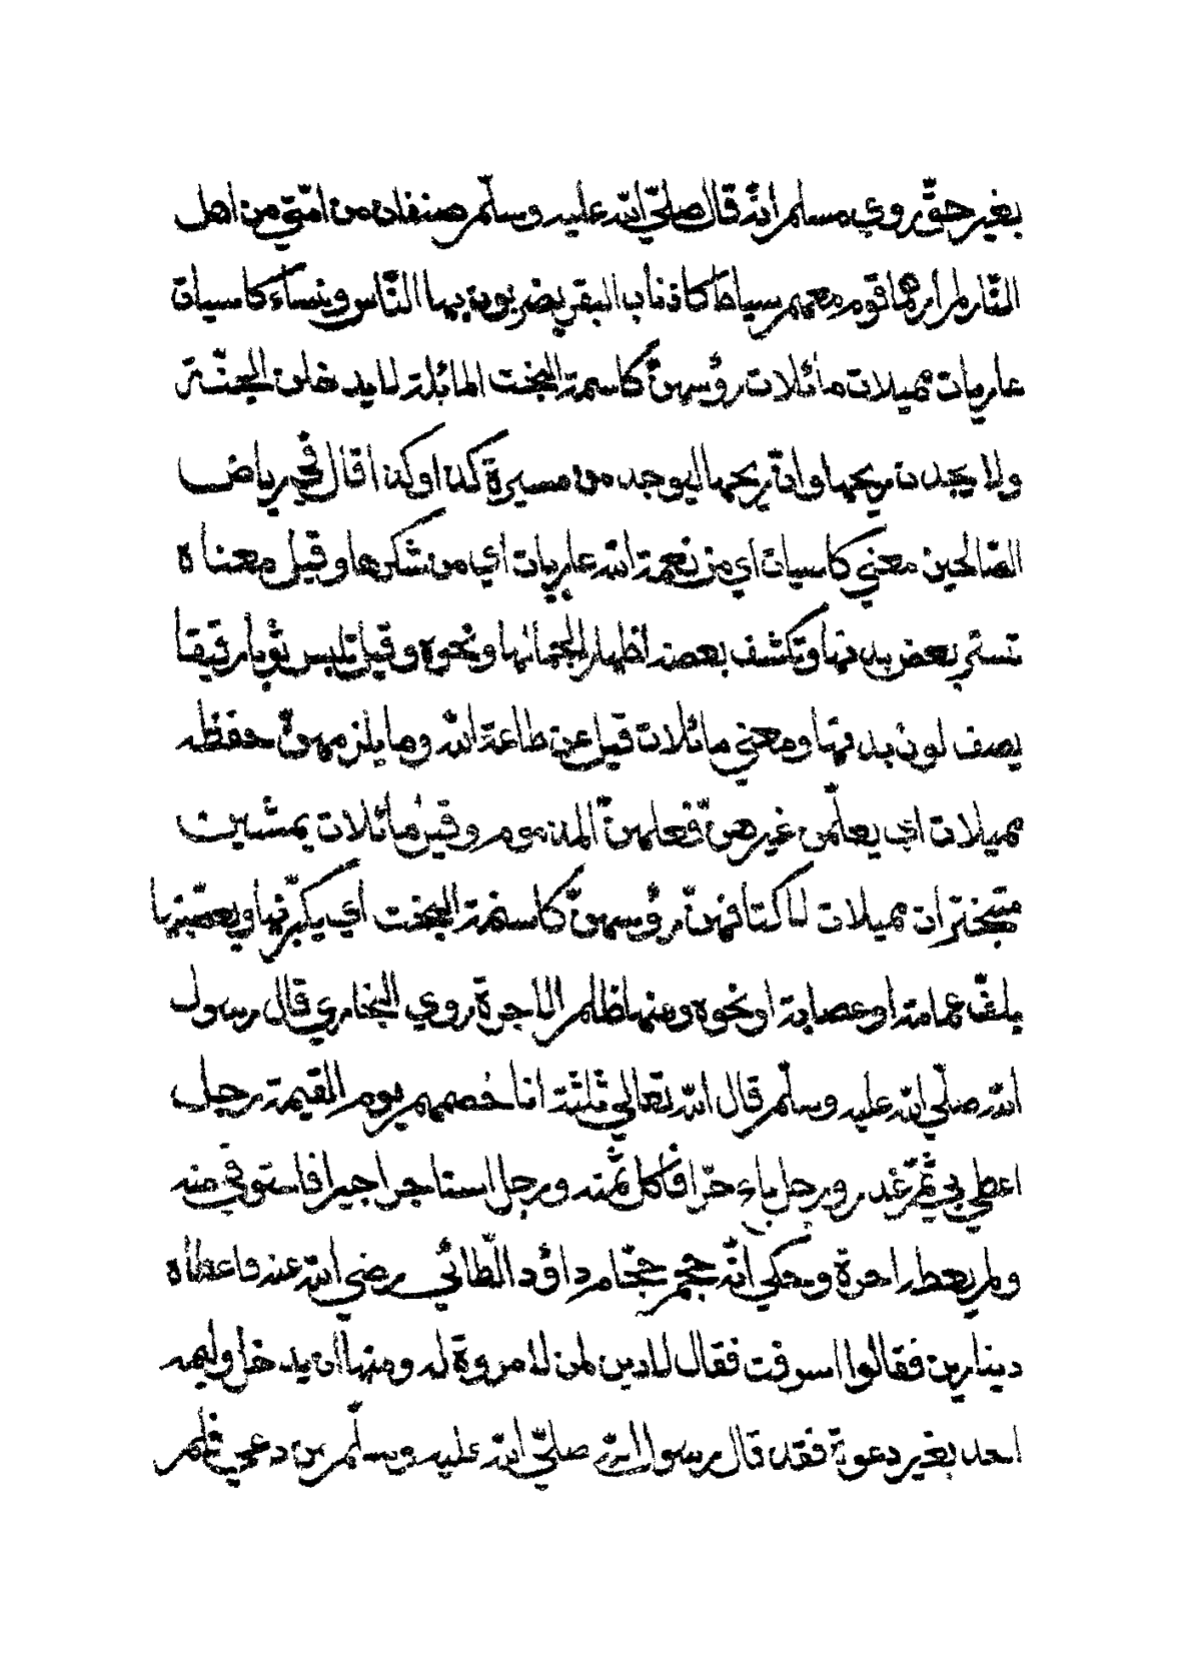 بغير حقّ روي مسلم انّه قال صلّي الله عليه وسلّم صنفان من امّتي من اهل
النّار لم ارهما قوم معهم سياط كاذناب البقر يضربون بها النّاس ونساء كاسيات
عاريات مميلات مائلات رؤسهنّ كاسنمة البخت المائلة لا يدخلن الجنّة
ولا يجدن ريحها وانّ ريحها ليوجد من مسيرة كذا وكذا قال في رياض
الصّالحين معني كاسيات اي من نعمة الله عاريات اي من شكرها وقيل معناه
تستر بعض بدنها وتكشف بعضه اظهارا لجمالها ونحوه وقيل تلبس ثوبا رقيقا
يصف لون بدنها ومعني مائلات قيل عن طاعة الله وما يلزمهنّ حفظه
مميلات اي يعلّمن غيرهنّ فعلهنّ المذموم وقيل مائلات يمشين
متبخترات مميلات لاكتافهنّ رؤسهنّ كاسنمة البخت اي يكبّرنها ويعصّبنها
بلفّ عمامة او عصابة او نحوه ومنها ظلم الاجرة روي البخاري قال رسول
الله صلّي الله عليه وسلّم قال الله تعالي ثلثة انا خصمهم يوم القيمة رجل
اعطي بي ثمّ غدر ورجل باع حرّا فاكل ثمنه ورجل استاجر اجيرا فاستوفي منه
ولم يعط اجرة وحكي انّه حجم حجّام داؤد الطّائي رضي الله عنه فاعطاه
دينارين فقالوا اسرفت فقال لا دين لمن لا مروة له ومنها ان يدخل وليمه
احد بغير دعوة فقد قال رسول الله صلّي الله عليه وسلّم من دعي فلم